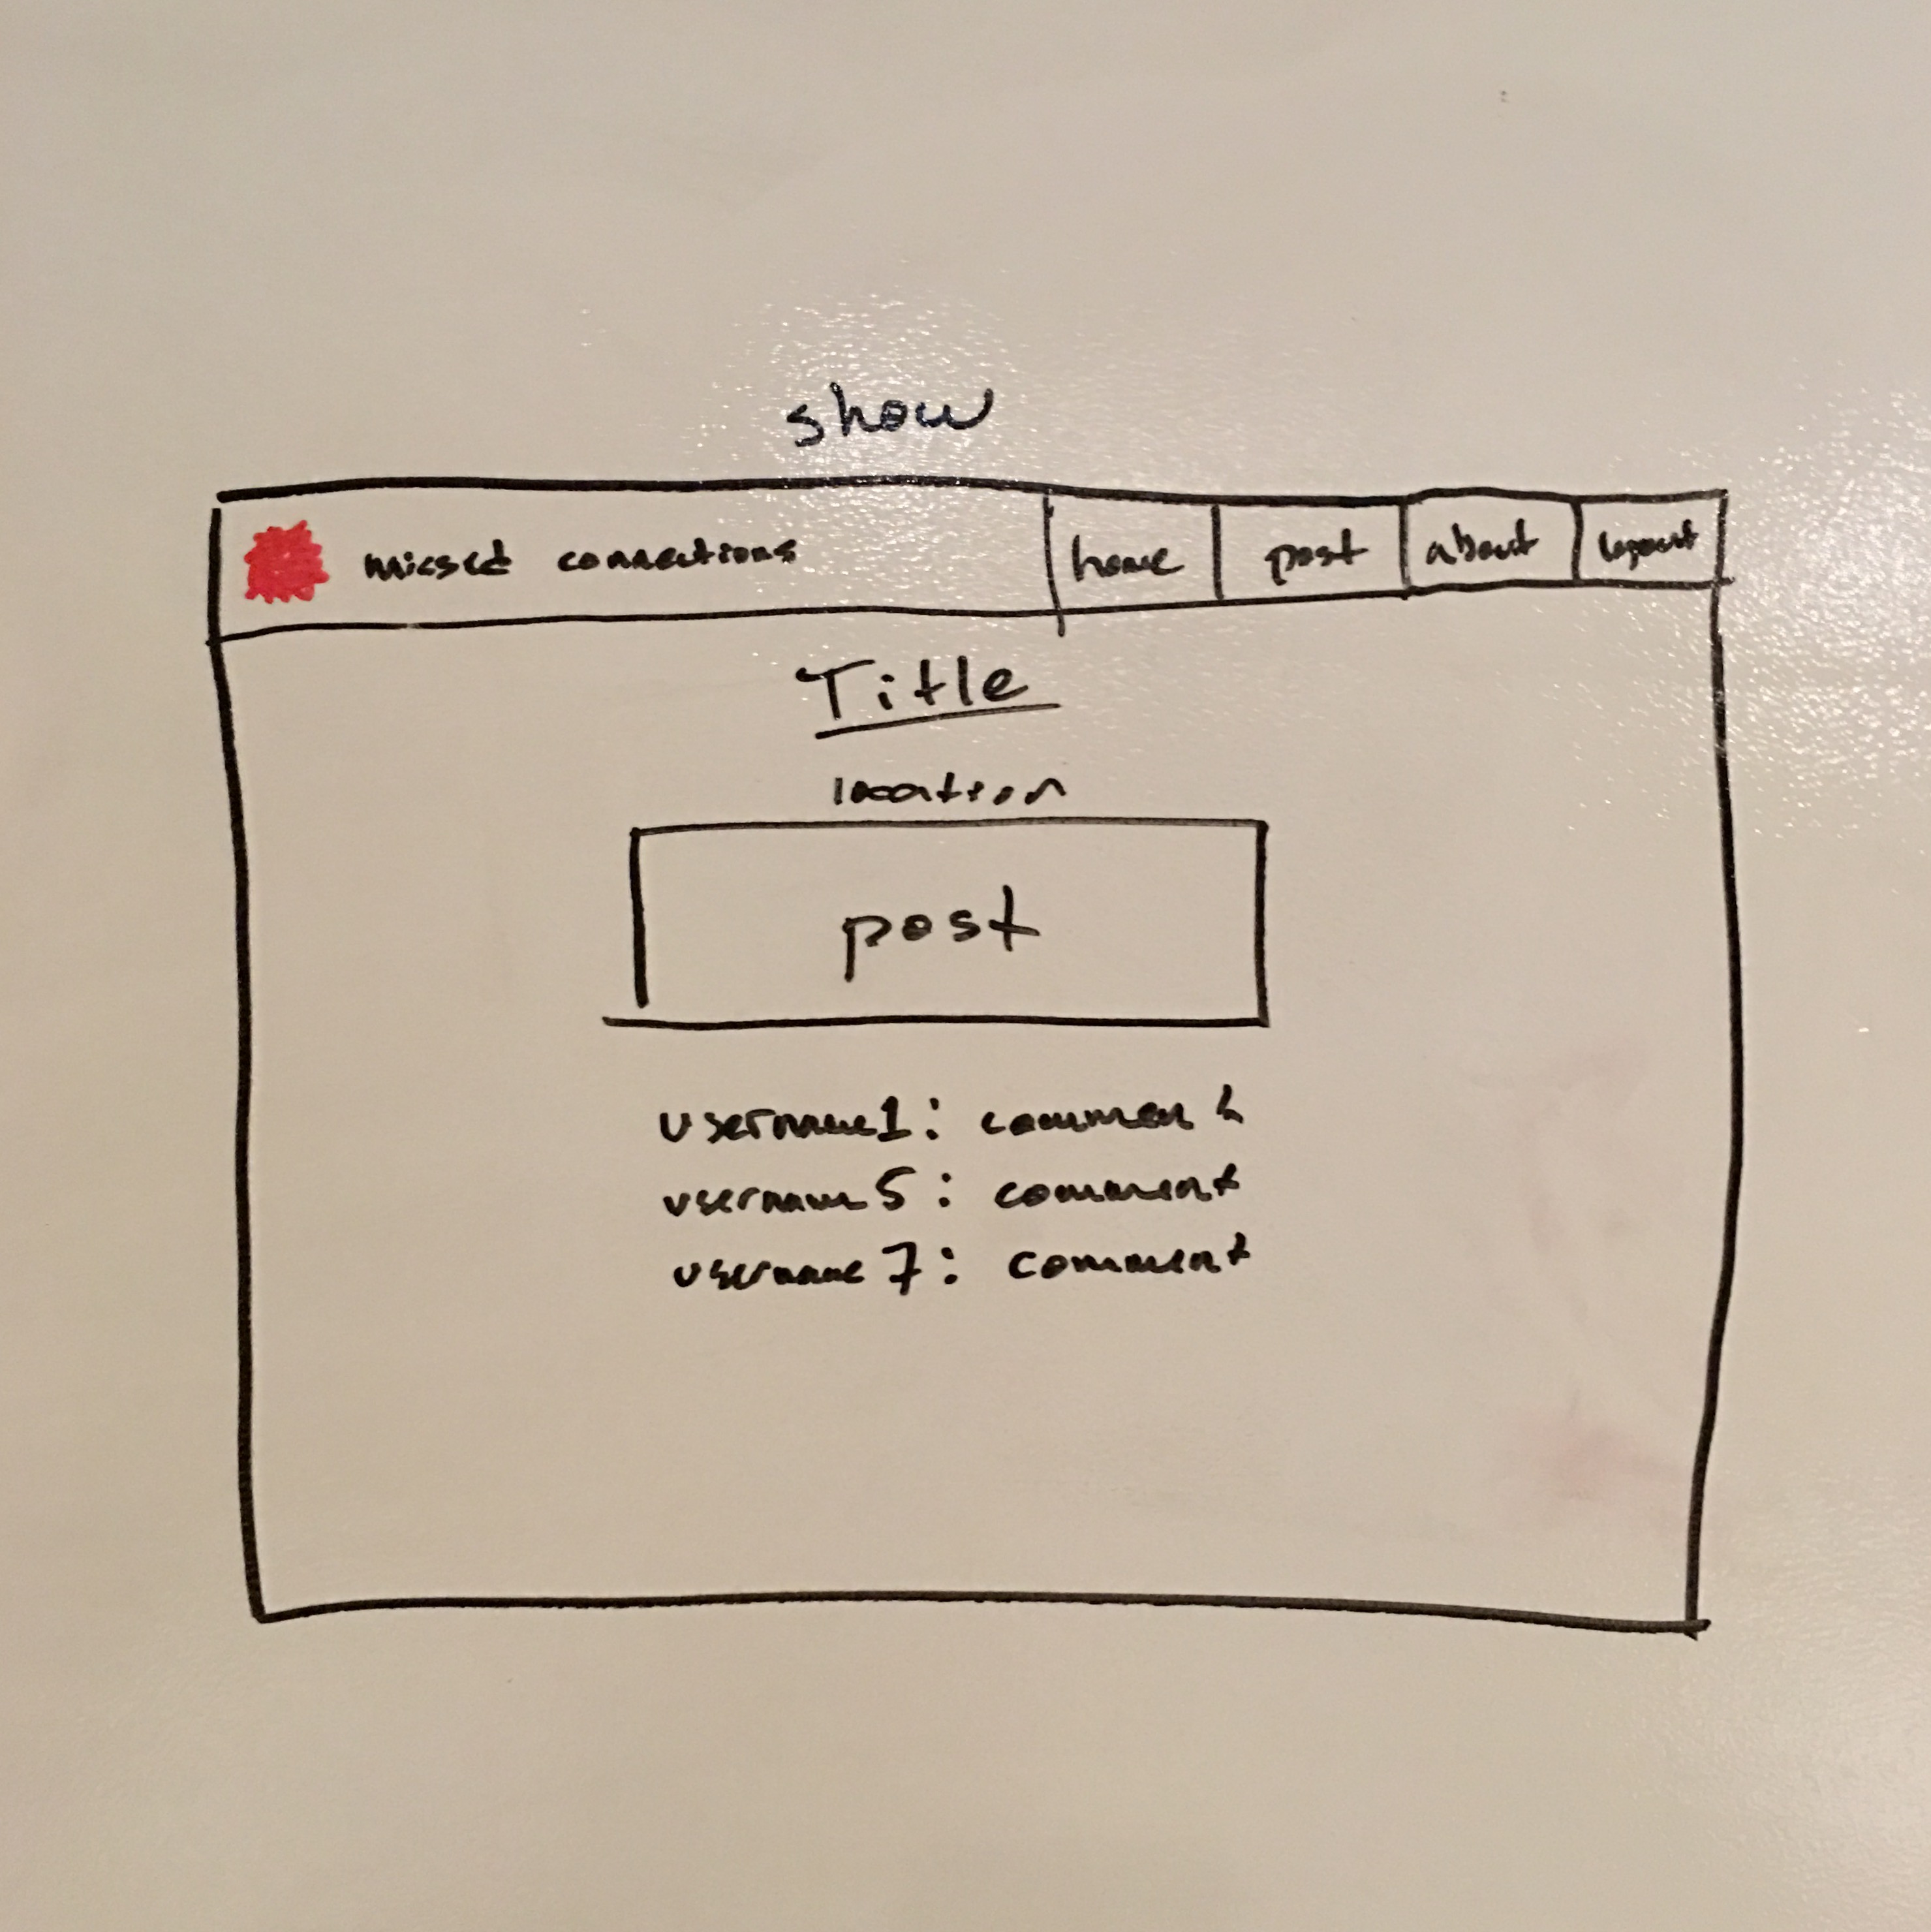 show
missed connections home post about logout
Title
location
post
username1: comment
username5: comment
username7: comment